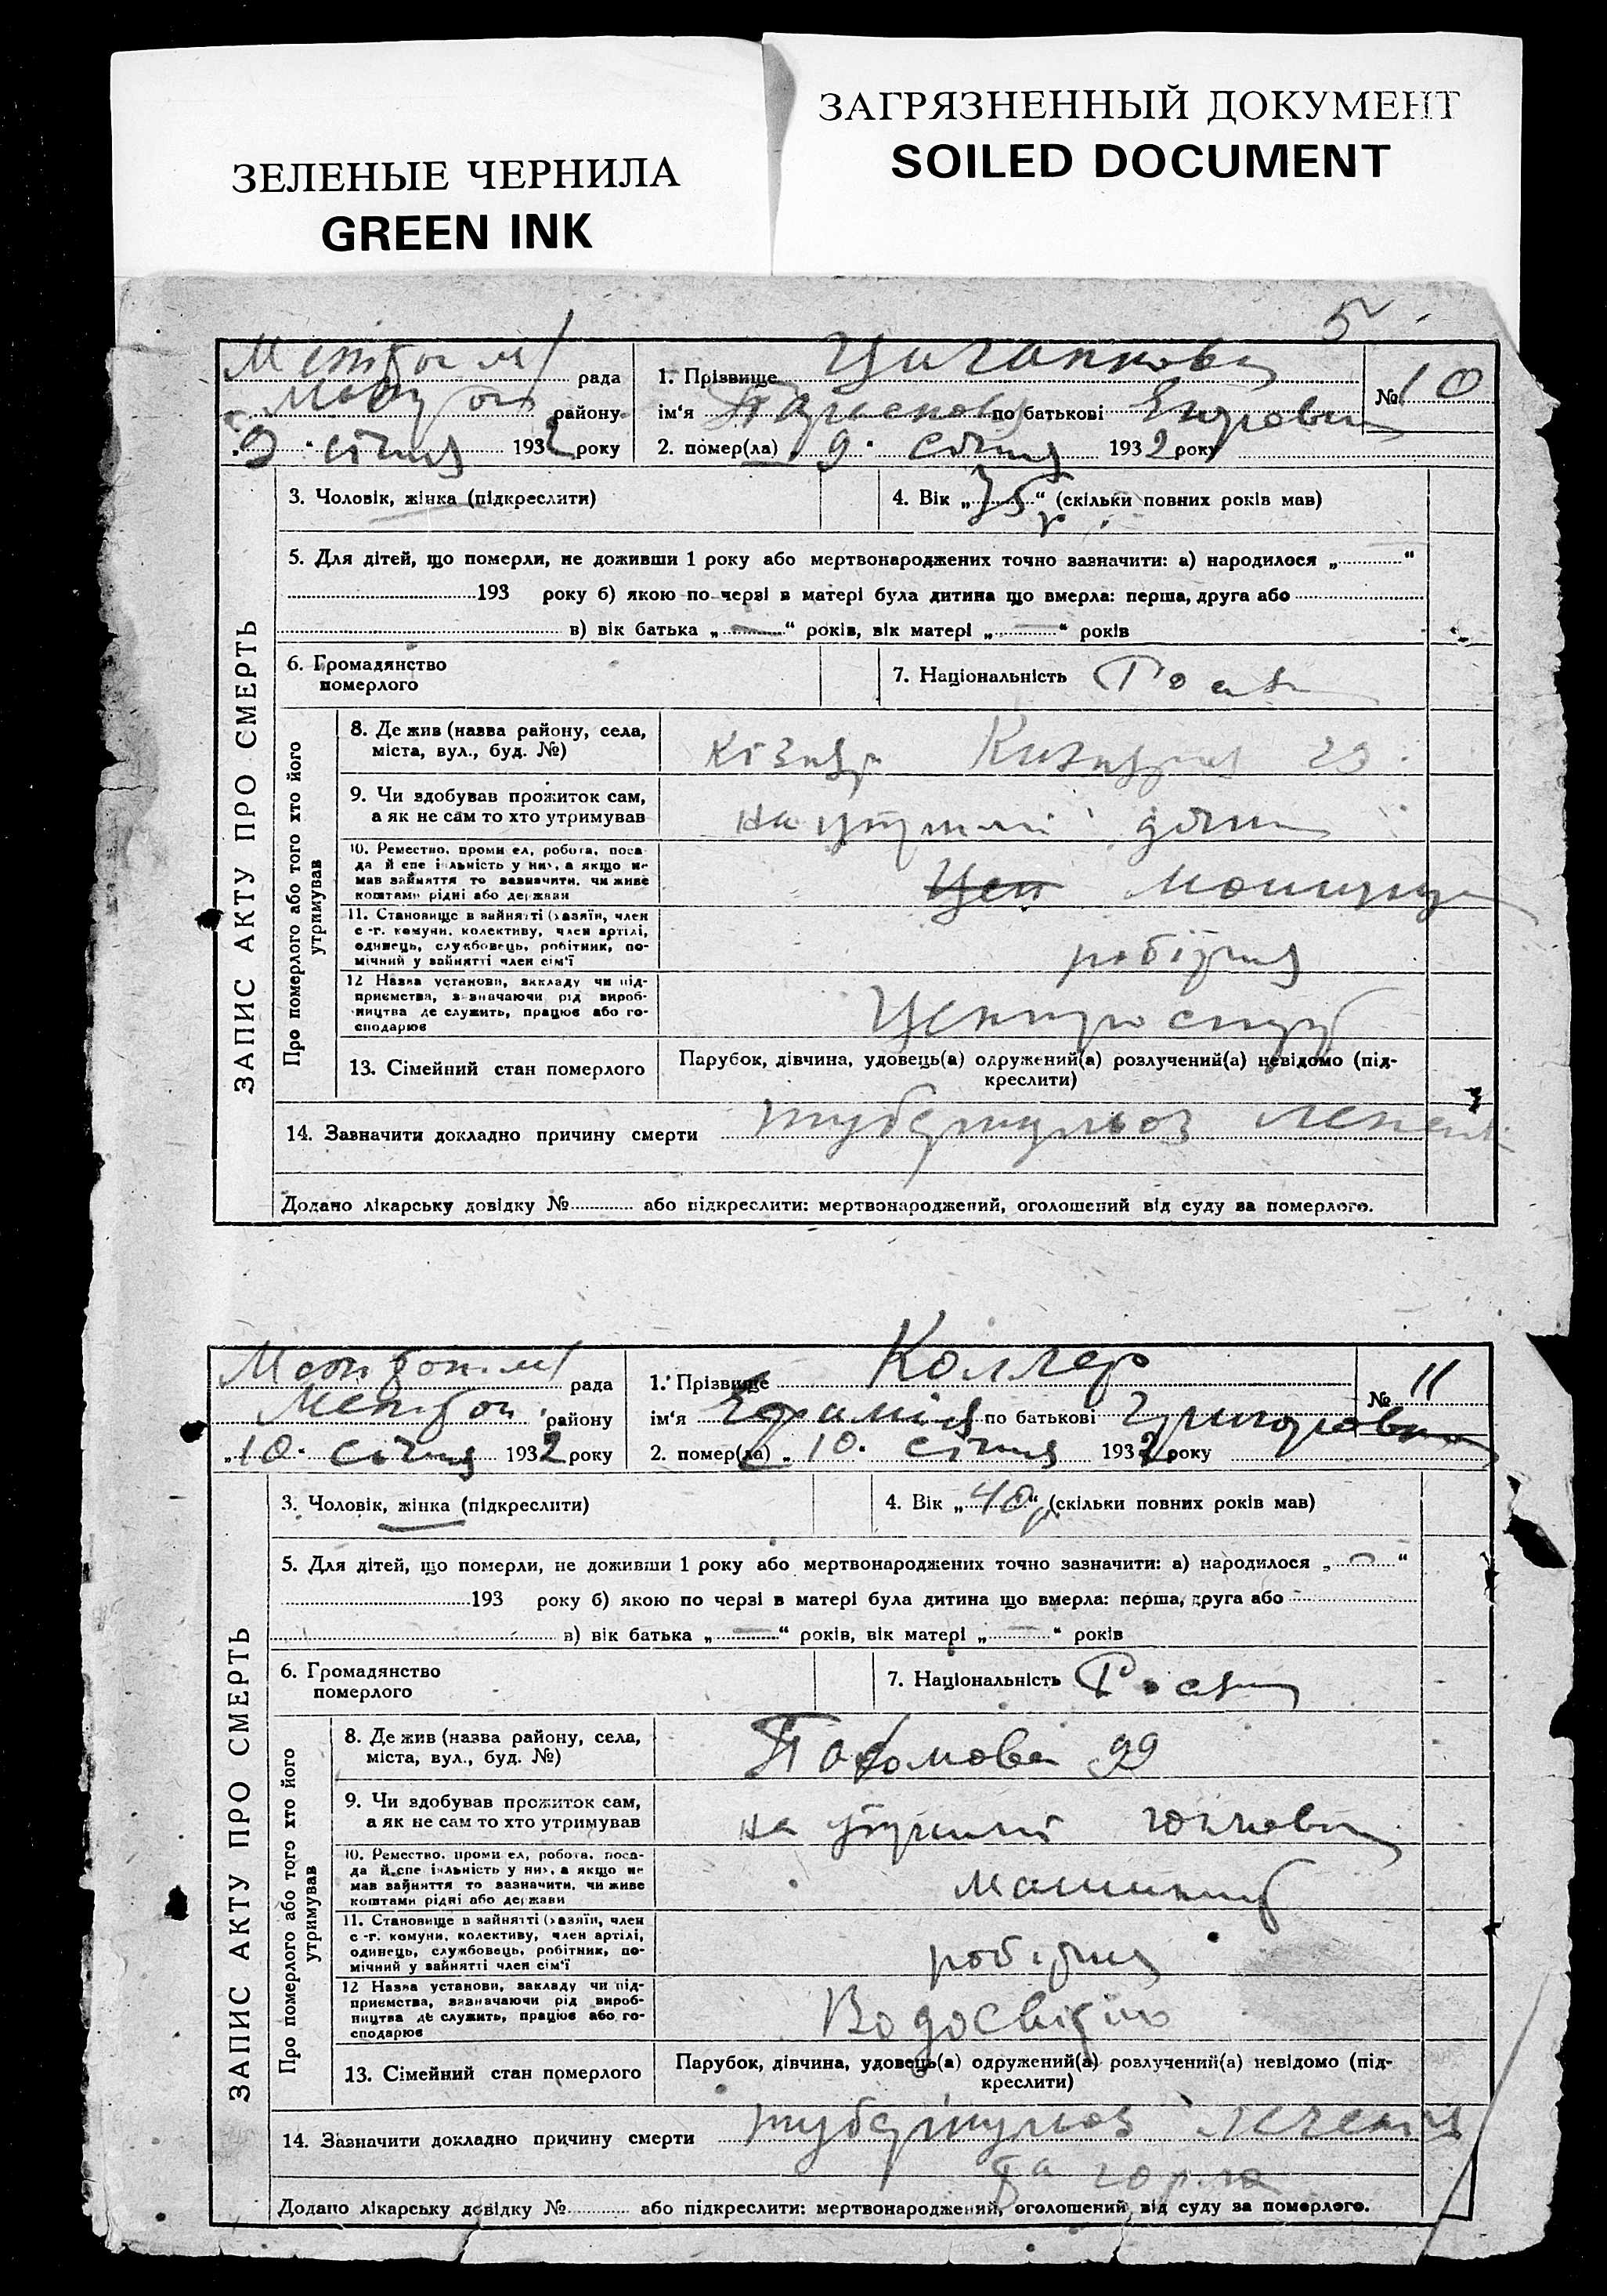 ЗЕЛЕНЫЕ ЧЕРНИЛА
GREEN INK
ЗАГРЯЗНЕННЫЙ ДОКУМЕНТ
SOILED DOCUMENT
5
рада
району
9 січня 1932 року
1. Прізвище Циганкова
№ 10
ім'я по батькові Егоровна
2. помер(ла) 9 січня 1932 року
ЗАПИС АКТУ ПРО СМЕРТЬ
3. Чоловік, жінка (підкреслити)
4. Вік „75 р“ (скільки повних років мав)
5. Для дітей, що померли, не доживши 1 року або мертвонароджених точно зазначити: а) народилося „ “
193 року б) якою по черзі в матері була дитина що вмерла: перша, друга або
в) вік батька „—“ років, вік матері „—“ років
6. Громадянство померлого
7. Національність Рос
Про померлого або того хто його утримував
8. Де жив (назва району, села, міста, вул., буд. №)
9. Чи здобував прожиток сам, а як не сам то хто утримував
на утрим дочки
10. Ремество, промисел, робота, посада й спеціяльність у них, а якщо не мав заняття то зазначити, чи живе коштами рідні або держави
11. Становище в занятті (хазяїн, член с.-г. комуни, колективу, член артілі, одинець, службовець, робітник, помічний у занятті член сім'ї
робітник
12 Назва установи, закладу чи підприємства, зазначаючи рід виробництва де служить, працює або господарює
13. Сімейний стан померлого
Парубок, дівчина, удовець(а) одружений(а) розлучений(а) невідомо (підкреслити)
14. Зазначити докладно причину смерти туберкульоз легенів
Додано лікарську довідку № або підкреслити: мертвонароджений, оголошений від суду за померлого.
рада
району
„10. січня 1932 року
1. Прізвище Коллер
№ 11
ім'я по батькові Григоровна
2. помер(ла) „10. січня 1932 року
ЗАПИС АКТУ ПРО СМЕРТЬ
3. Чоловік, жінка (підкреслити)
4. Вік „40 р“ (скільки повних років мав)
5. Для дітей, що померли, не доживши 1 року або мертвонароджених точно зазначити: а) народилося „—“
193 року б) якою по черзі в матері була дитина що вмерла: перша, друга або
в) вік батька „—“ років, вік матері „—“ років
6. Громадянство померлого
7. Національність Рос
Про померлого або того хто його утримував
8. Де жив (назва району, села, міста, вул., буд. №)
99
9. Чи здобував прожиток сам, а як не сам то хто утримував
на утрим чоловіка
10. Ремество, промисел, робота, посада й спеціяльність у них, а якщо не мав заняття то зазначити, чи живе коштами рідні або держави
машиніст
11. Становище в занятті (хазяїн, член с.-г. комуни, колективу, член артілі, одинець, службовець, робітник, помічний у занятті член сім'ї
робітник
12 Назва установи, закладу чи підприємства, зазначаючи рід виробництва де служить, працює або господарює
13. Сімейний стан померлого
Парубок, дівчина, удовець(а) одружений(а) розлучений(а) невідомо (підкреслити)
14. Зазначити докладно причину смерти туберкульоз легенів
та горла
Додано лікарську довідку № або підкреслити: мертвонароджений, оголошений від суду за померлого.